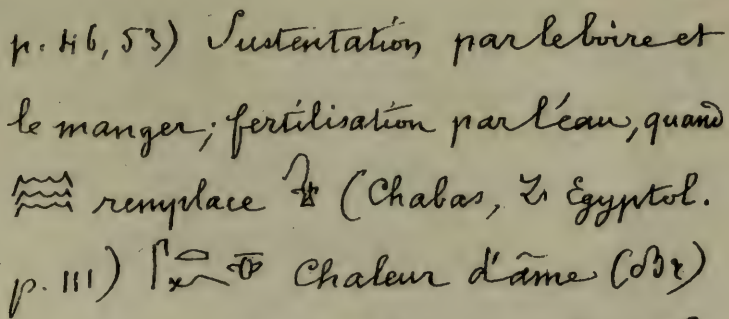 p. 46, 53) Sustentation par le boire et
le manger; fertilisation par l'eau, quand
𓈗 remplace (Chabas, Egyptol.
p. 111) Chaleur d'âme (Br)